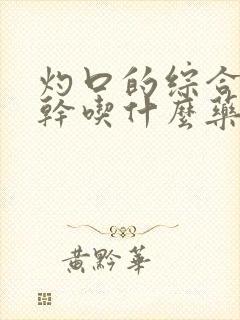 灼口的综合
幹喫什麼藥
黄黔華